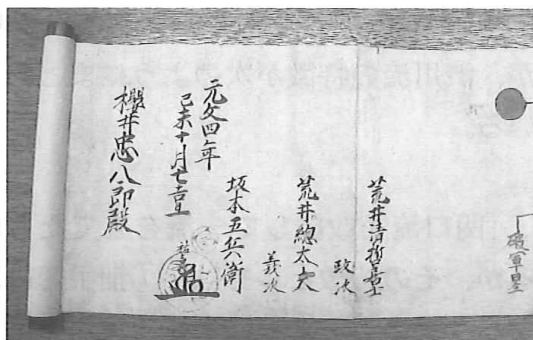 破軍星
荒井清
政次
荒井總太夫
義次
坂本五兵衛
元文四年
己未十月
櫻井忠八郎殿